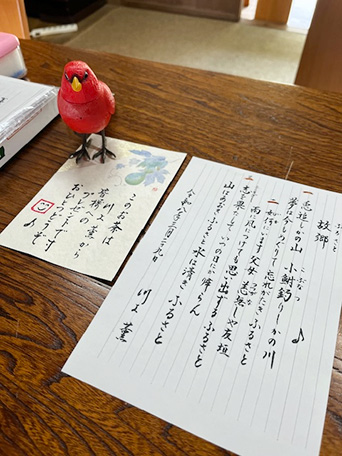 ふるさと
故郷
一
兎追しかの山 小鮒釣りしかの川
こぶなつ
夢は今もめぐりて 忘れがたき ふるさと
二
如何にいます父母 恙無しや友垣
雨に風につけても 思い出ずる ふるさと
三
志を果たして いつの日にか 帰らん
山はあおき ふるさと 水は清き ふるさと
川又 薫
川又 薫から
皆様への
プレゼントです
おひとつどうぞ